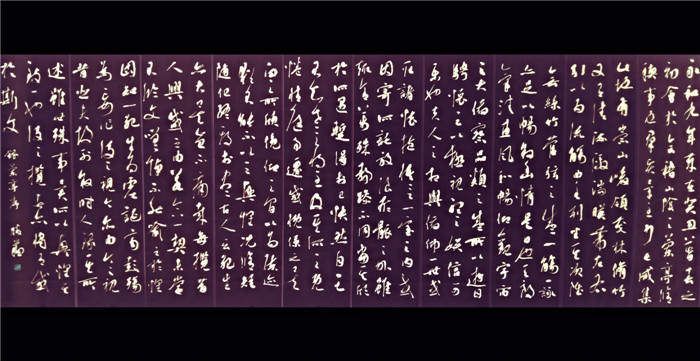 永和九年歲在癸丑暮春之
初會於會稽山陰之蘭亭脩
禊事也羣賢畢至少長咸集
此地有崇山峻領茂林脩竹
又有清流激湍暎帶左右
引以為流觴曲水列坐其次雖
無絲竹管弦之盛一觴一詠
亦足以暢敘幽情是日也天朗
氣清惠風和暢仰觀宇宙
之大俯察品類之盛所以遊目
騁懷足以極視聽之娛信可
樂也夫人之相與俯仰一世或
取諸懷抱悟言一室之內或
因寄所託放浪形骸之外雖
趣舍萬殊靜躁不同當其欣
於所遇蹔得於己快然自足
不知老之將至及其所之既
惓情隨事遷感慨係之矣
向之所欣俛仰之間以為陳迹
猶不能不以之興懷況脩短
隨化終期於盡古人云死生
亦大矣豈不痛哉每攬昔
人興感之由若合一契未嘗
不臨文嗟悼不能喻之於懷
固知一死生為虛誕齊彭殤
為妄作後之視今亦由今之視
昔悲夫故列敘時人錄其所
述雖世殊事異所以興懷其
致一也後之攬者亦將有感
於斯文 錄蘭亭序